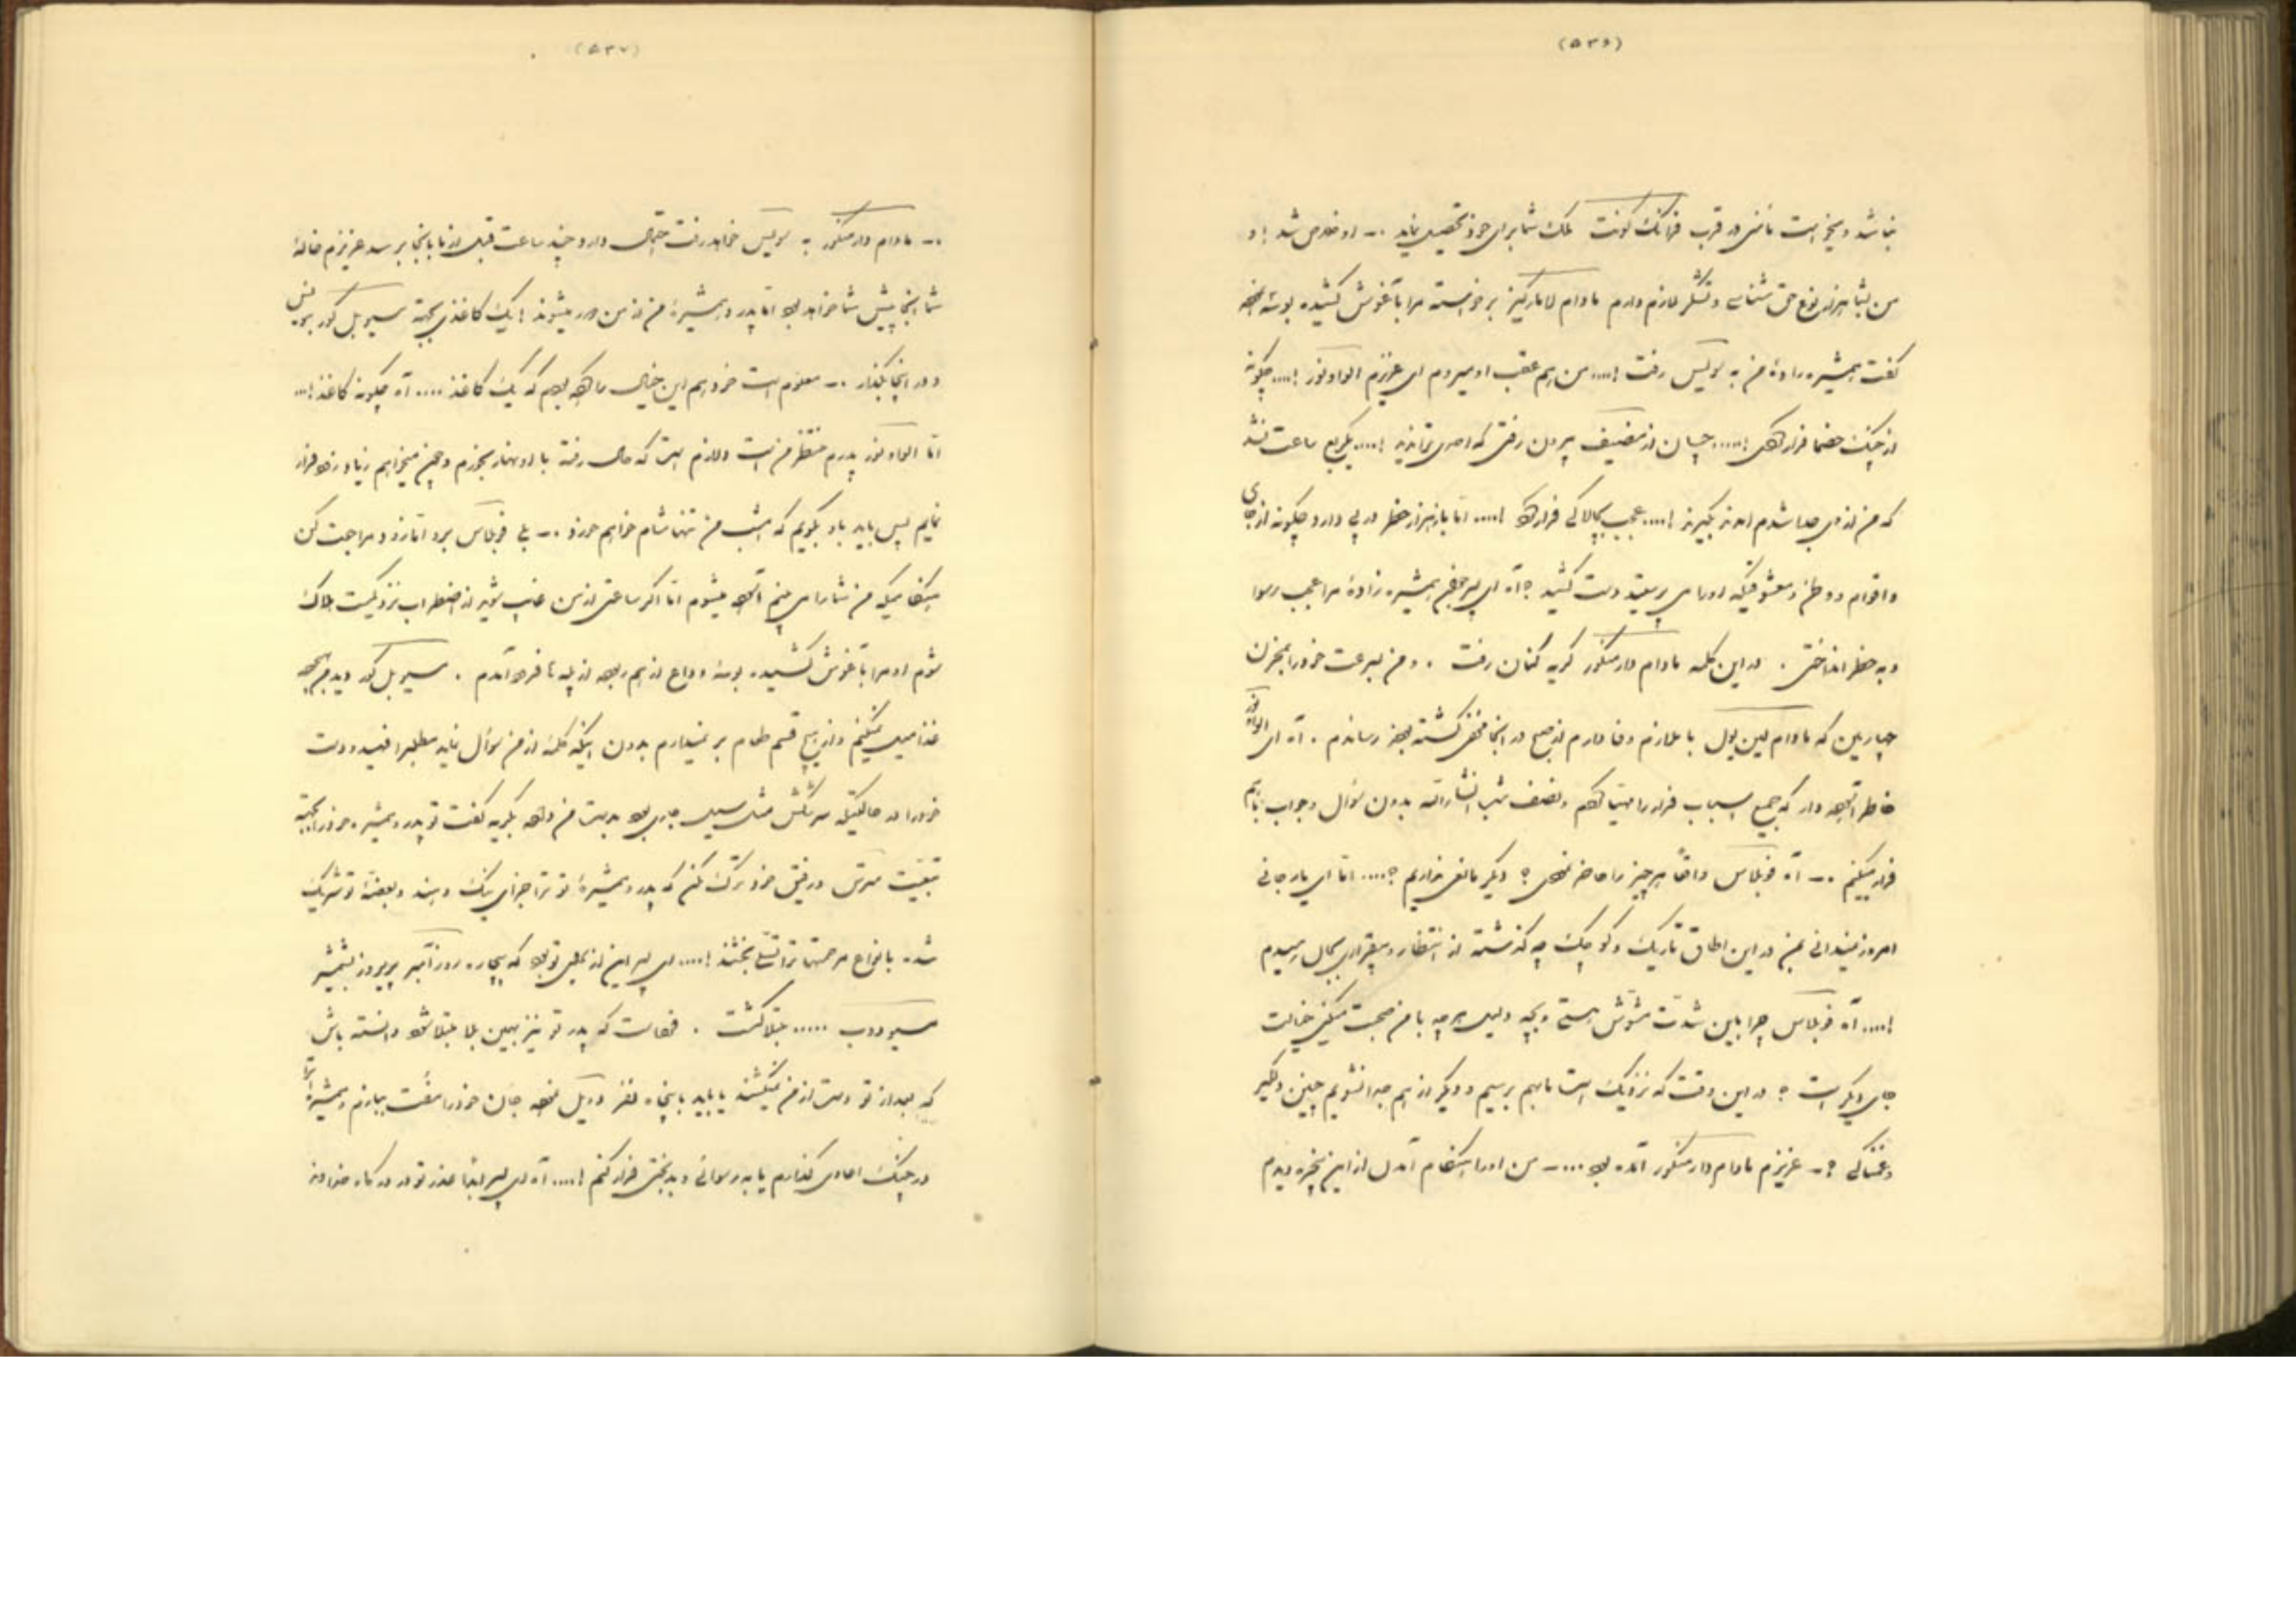 (۵۳۶)
نباشد و میخواست مأمنی در قرب فرانک کونت ملک شما برای خود تحصیل نماید .– او خلاص شد ! و
من بشما هزار نوع حق شناسی و تشکر لازم دارم مادام لامارکیز برخواسته مرا بآغوش کشیده بوسه
گفت همشیره زادهٔ من به سویس رفت !.... من هم عقب او میروم ای عزیزم الواونور !.... چگونه
از چنگ خصما فرار کردی !..... چسان از مضیف بیرون رفتی که احدی نداند !.... یکربع ساعت نشد
که من از وی جدا شدم او را بگیرند !.... عجب بچالاکی فرار کرد !.... اما باز هزار خطر در پی دارد چگونه از جای
و اقوام و وطن و معشوقیکه او را می پرستید دست کشید ؟ آه ای پسر همشیره زادهٔ مرا عجب رسوا
و به خطر انداختی . در این کلمه مادام دارمنکور گریه کنان رفت . و من بسرعت خود را بمخزن
که مادام لین بول با ملازم وفادارم از صبح در اینجا مخفی گشته بودند رساندم . آه ای الواونور
خاطر آسوده دار که جمیع اسباب فرار را مهیا کردم و نصف شب انشاءالله بدون سؤال و جواب با هم
فرار میکنیم .– آه فوبلاس واقعاً هر چیز را حاضر نمودی ؟ دیگر مانعی نداریم ؟.... اما ای یار جانی
امروز نمیدانی بمن در این اطاق تاریک و کوچک چه گذشته از انتظار و بیقراری بجان رسیدم
!.... آه فوبلاس چرا باین شدت مشوش هستی و بچه دلیل هر چه با من صحبت میکنی خیالت
جای دیگر است ؟ در این وقت که نزدیک است تا بهم برسیم و دیگر از هم جدا نشویم چنین دلگیر
و غمناکی ؟– عزیزم مادام دارمنکور آمده بود ...– من او را هنگام آمدن از این پنجره دیدم
(۵۳۷)
.– مادام دارمنکور به سویس خواهد رفت احتمال دارد چند ساعت قبل از ما بآنجا برسد عزیزم خالهٔ
شما آنجا پیش شما خواهد بود اما پدر و همشیرهٔ من از من دور میشوند ! یک کاغذی بجهة مسیو بل کور بنویس
و در اینجا بگذار .– معلوم است خود هم این خیال را کرده بودم که یک کاغذ .... آه چگونه کاغذ !...
اما الواونور پدرم منتظر من است و لازم است که حال رفته با او نهار بخورم و چون میخواهم زیاد زود فرار
نمایم پس باید باو بگویم که امشب من تنها شام خواهم خورد .– بلی فوبلاس برو اما زود مراجعت کن
هنگامیکه من شما را می بینم آسوده میشوم اما اگر ساعتی از من غایب شوید از اضطراب نزدیکست هلاک
شوم او مرا بآغوش کشیده بوسهٔ وداع از هم ربوده از پله ها فرود آمدم . مسیو بل کور دید من هیچ
غذا میل نمیکنم و از هیچ قسم طعام بر نمیدارم بدون اینکه کلمهٔ از من سؤال نماید مطلب را فهمید و دست
خود را در حالتیکه سرشکش مثل سیل جاری بود بدست من داده بگریه گفت تو پدر و همشیره خود را بجهة
تبعیت مترس و رفیق خود ترک مکن که پدر و همشیرهٔ تو ترا جزای نیک دهند و بغصهٔ تو شریک
شده بانواع مرحمتها ترا تسلی بخشند !.... ای پسر این از بدبختی تو بود که بیچاره روزآمبر پریروز بشمشیر
مسیو دوب ..... مبتلا گشت . فهماست که پدر تو نیز بهمین بلا مبتلا شود دانسته باش
که بعد از تو دست از من نمیکشند یا باید با پنجاه نفر دوئل نموده جان خود را مفت ببازم و همشیره ترا
در چنگ اعادی گذارم یا به رسوائی و بدبختی فرار کنم !.... آه ای پسر ابداً عذر تو در درگاه خداوند